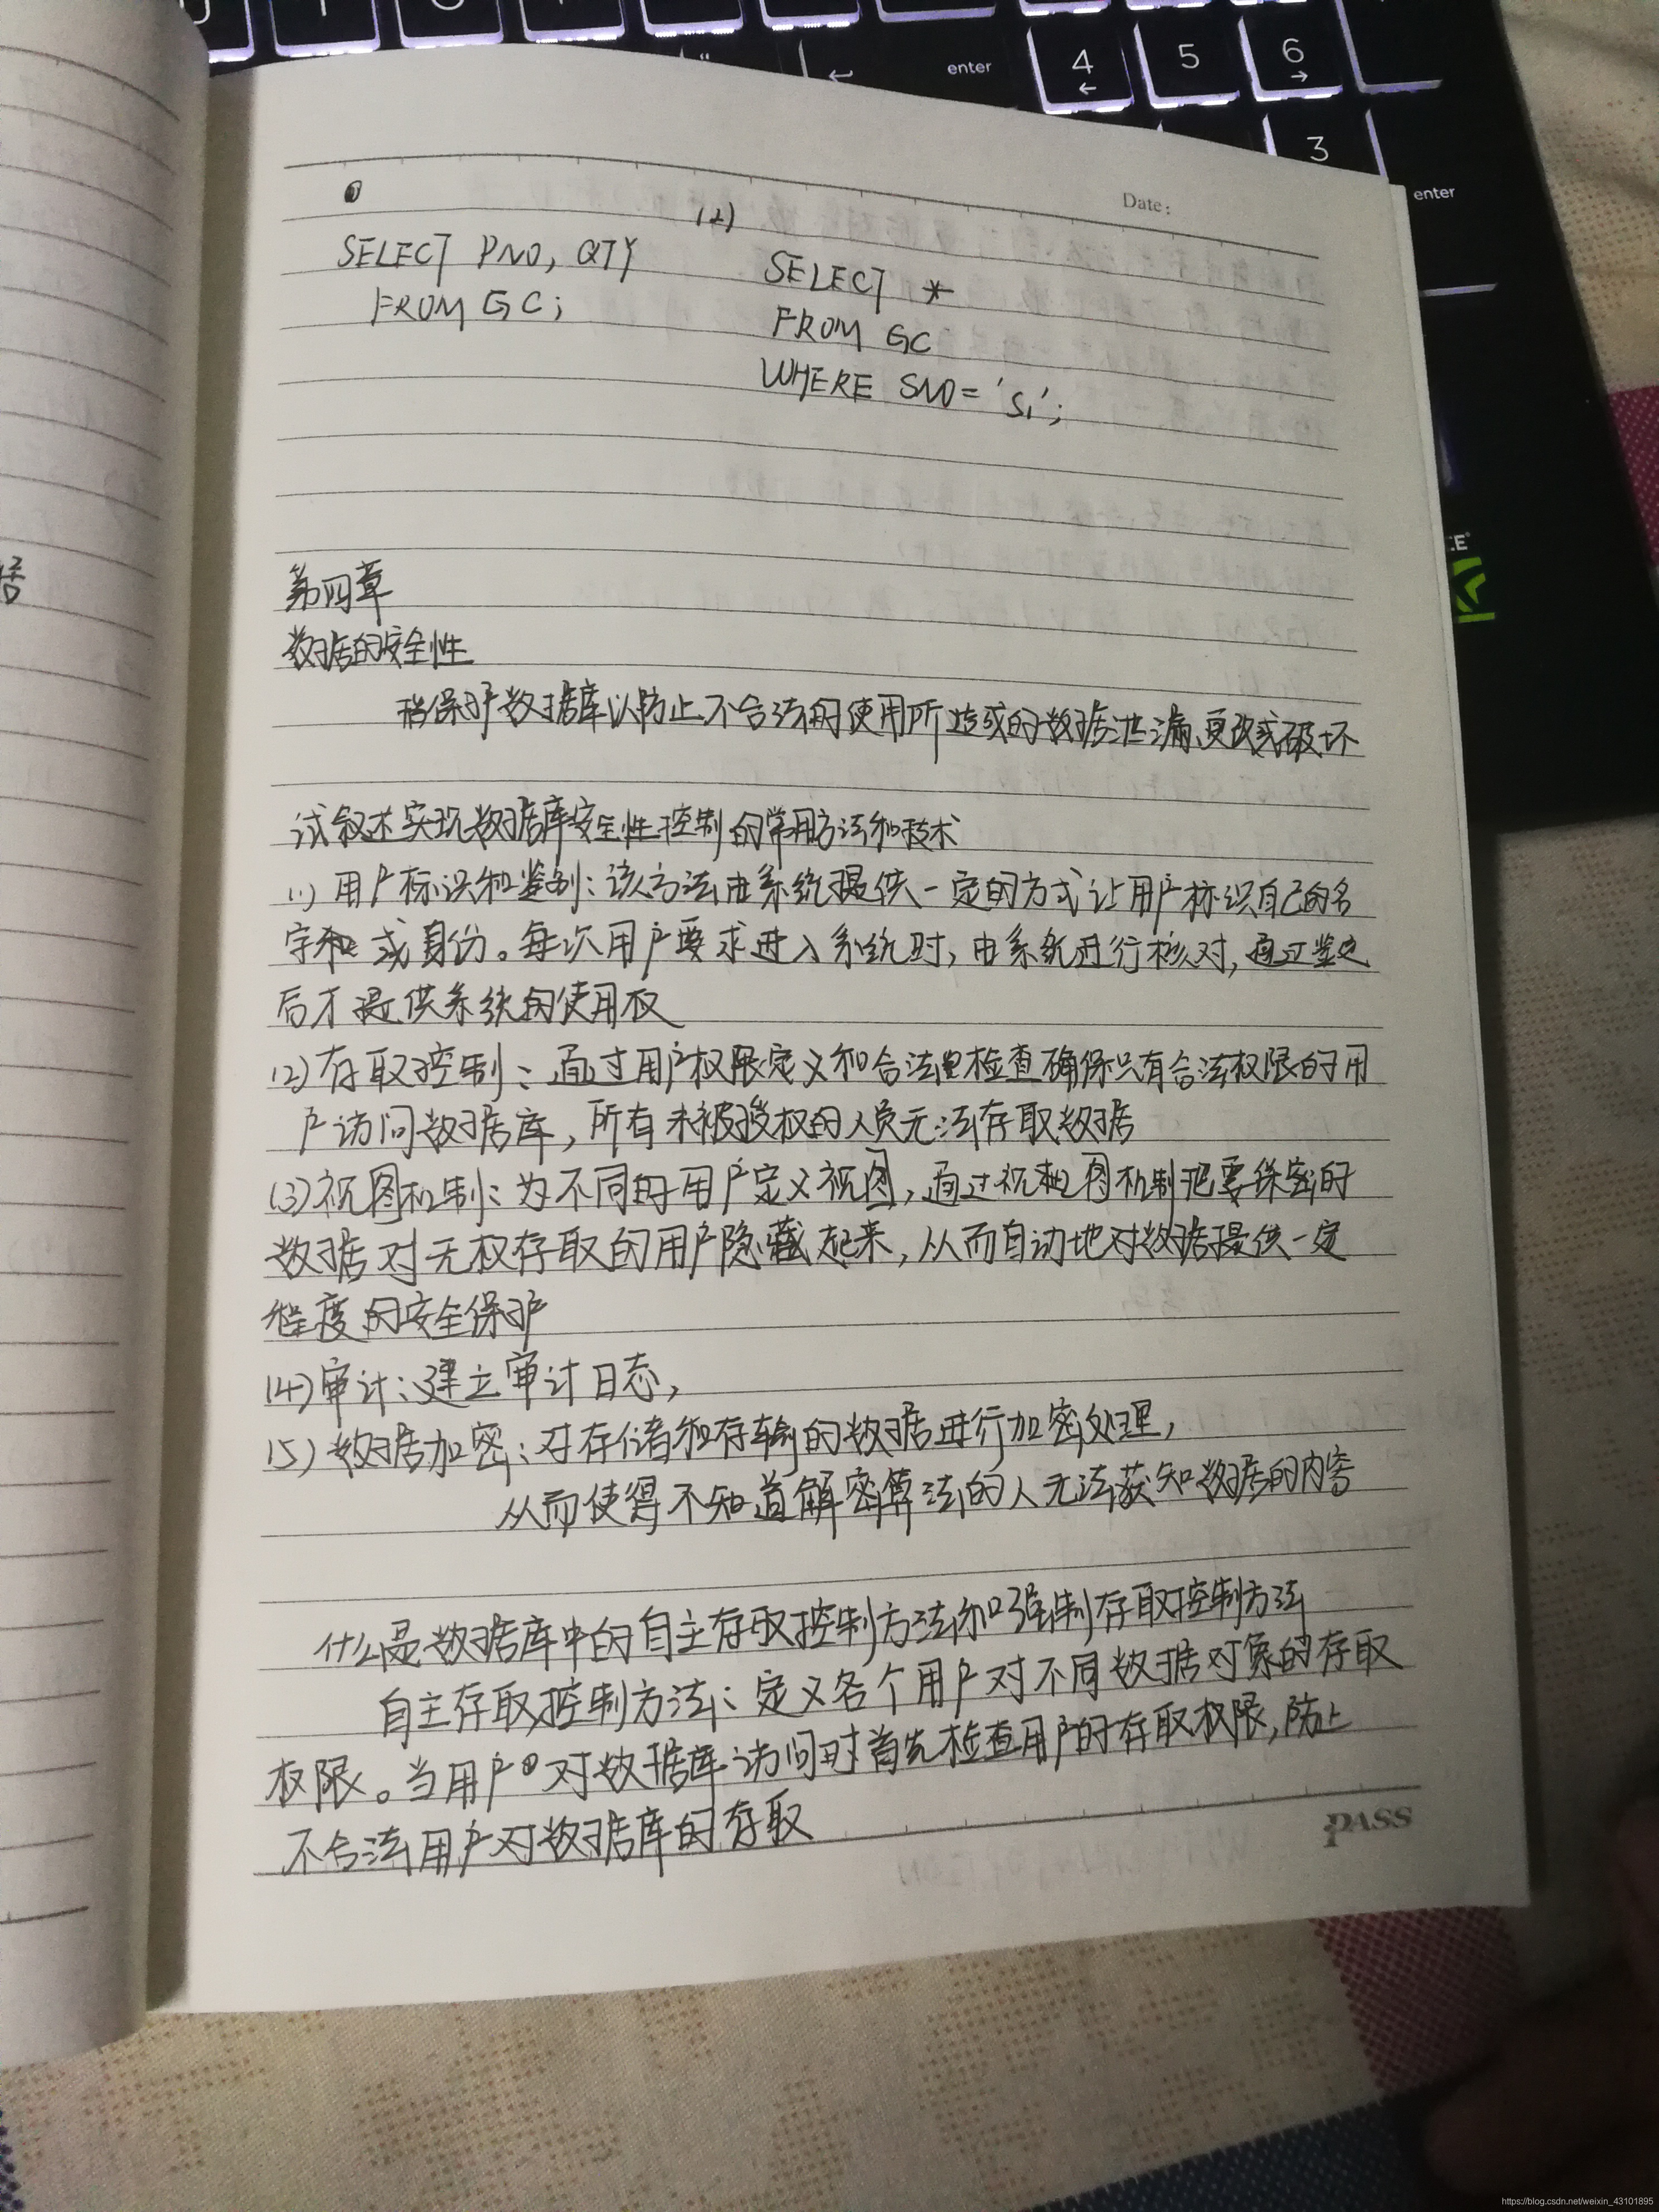 4 5 6
enter
3
enter
Date:
(2)
SELECT PNO, QTY
FROM GC;
SELECT *
FROM GC
WHERE SNO='S1';
第四章
数据的安全性
指保护数据库以防止不合法的使用所造成的数据泄漏、更改或破坏
试叙述实现数据库安全性控制的常用方法和技术
(1) 用户标识和鉴别：该方法由系统提供一定的方式让用户标识自己的名
字和 或身份。每次用户要求进入系统时，由系统进行核对，通过鉴定
后才提供系统的使用权
(2) 存取控制：通过用户权限定义和合法检查确保只有合法权限的用
户访问数据库，所有未被授权的人员无法存取数据
(3) 视图机制：为不同的用户定义视图，通过视图机制把要保密的
数据对无权存取的用户隐藏起来，从而自动地对数据提供一定
程度的安全保护
(4) 审计：建立审计日志，
(5) 数据加密：对存储和存输的数据进行加密处理，
从而使得不知道解密算法的人无法获知数据的内容
什么是数据库中的自主存取控制方法和强制存取控制方法
自主存取控制方法：定义各个用户对不同数据对象的存取
权限。当用户对数据库访问时首先检查用户的存取权限，防止
不合法用户对数据库的存取
PASS
https://blog.csdn.net/weixin_43101895